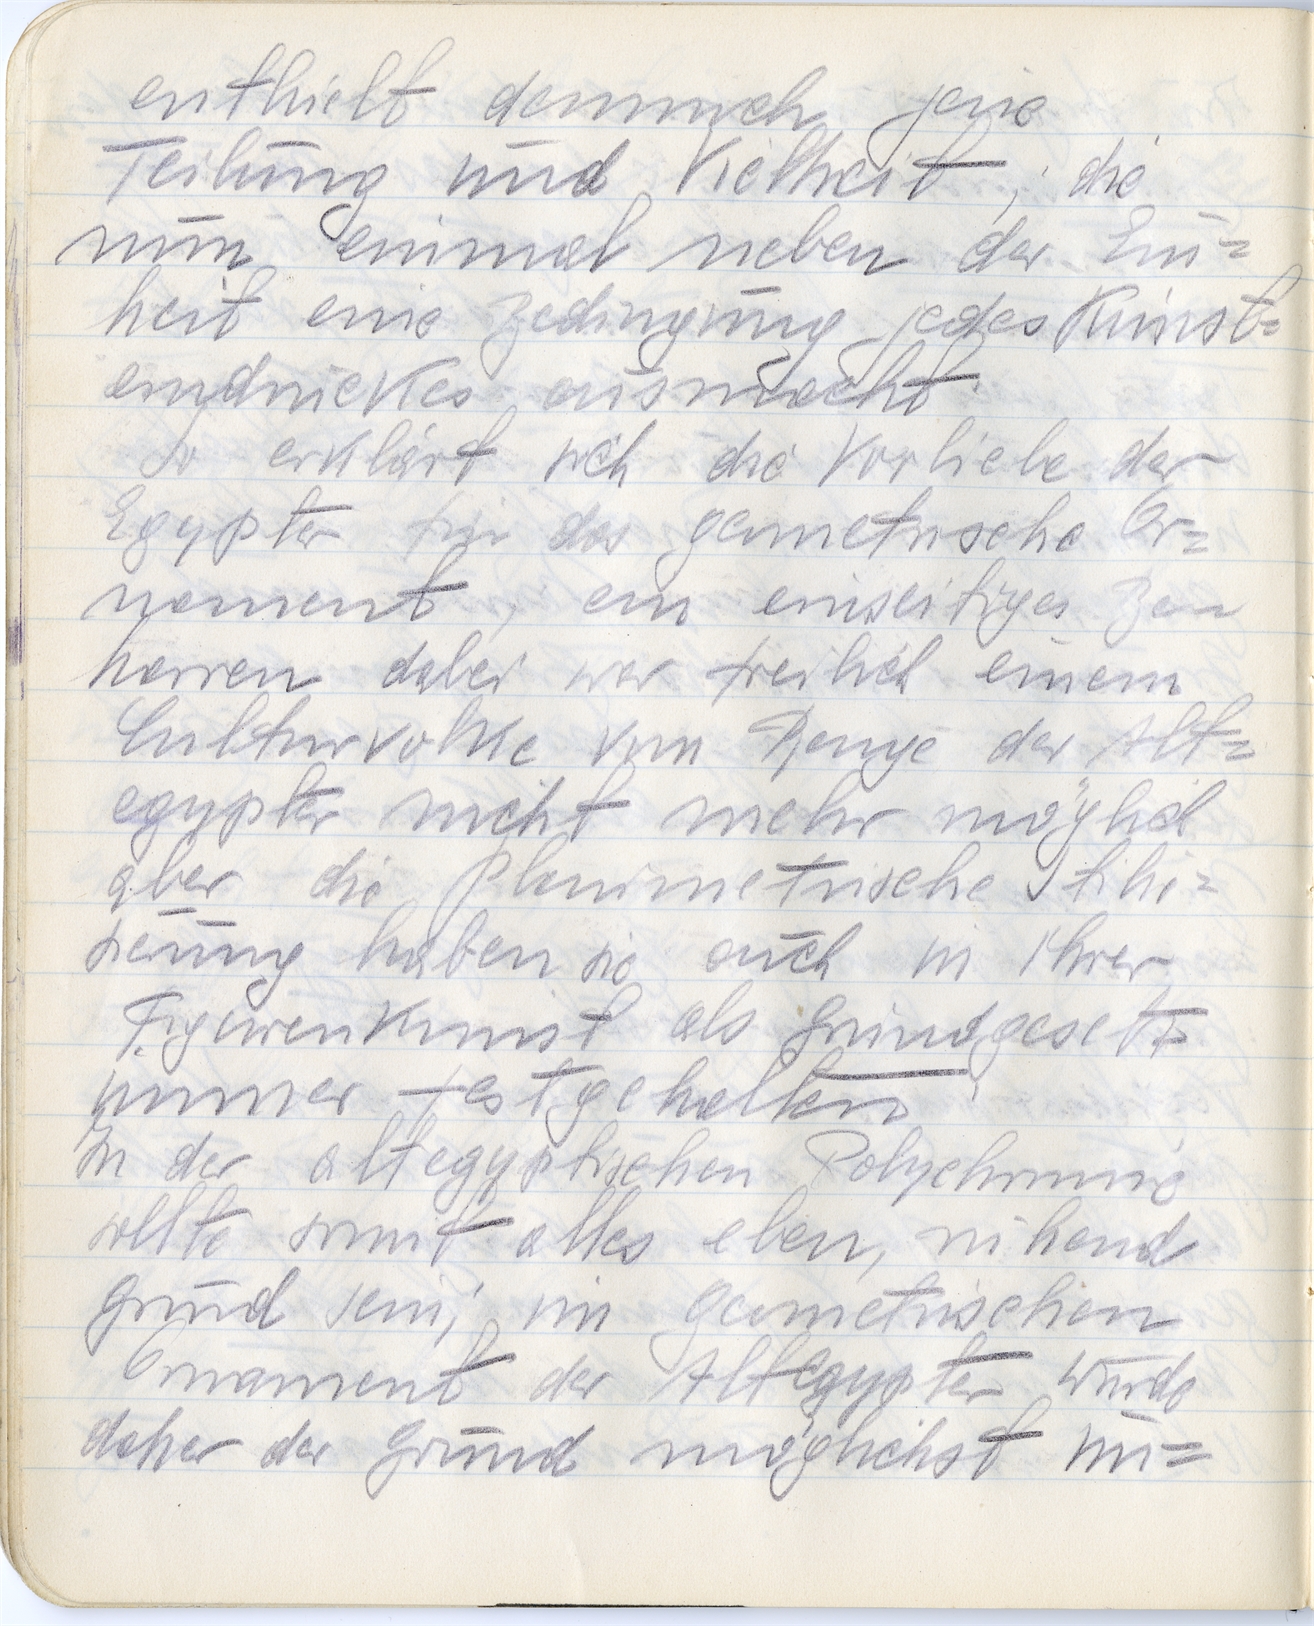 enthielt demnach jene
Teilung und Vielheit, die
nun einmal neben der Ein=
heit eine Bedingung jedes Kunst=
eindruckes ausmacht.
So erklärt sich die Vorliebe der
Egypter für das geometrische Or=
nament, ein einseitiges Be
harren dabei war freilich einem
Culturvolke vom Range der Alt=
egypter nicht mehr möglich
aber die planimetrische Stili=
sierung haben sie auch in ihrer
Figurenkunst als Grundgesetz
immer festgehalten.
In der altegyptischen Polychromie
sollte somit alles eben, ruhend
Grund sein; im geometrischen
Ornament der Altegypter wurde
daher der Grund möglichst un=